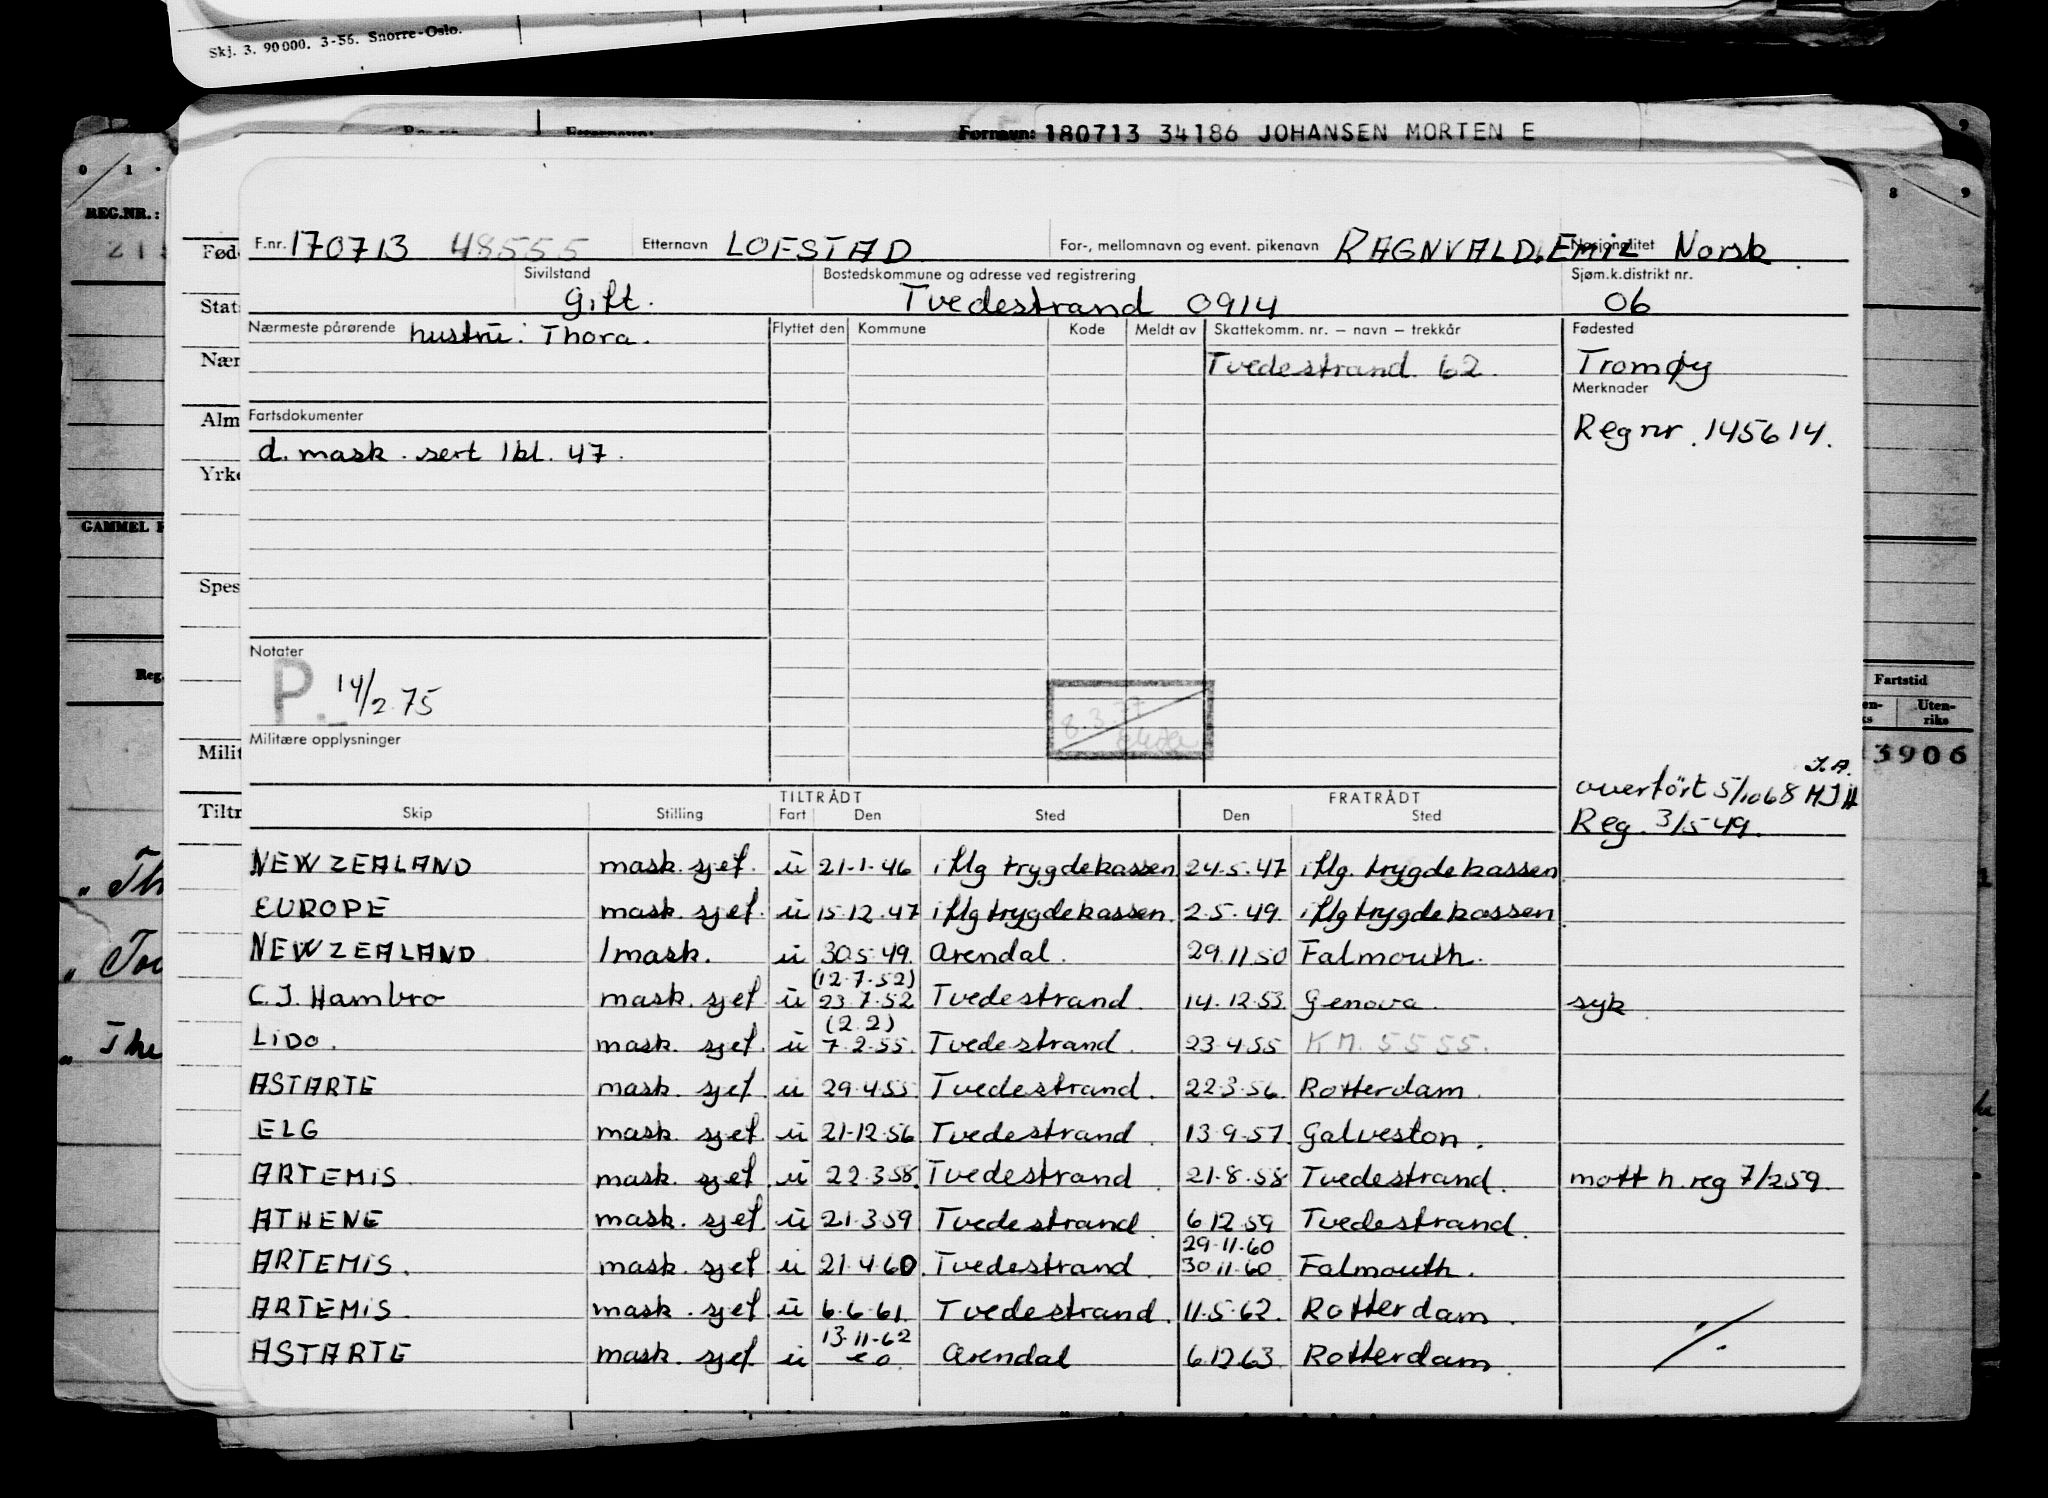 Skj. 3. 90000. 3-56. Snorre-Oslo.
Fornavn: 180713 34186 JOHANSEN MORTEN E
REG.NR.:
GAMMEL
Reg.
Fartstid
Uten-
riks
3906
F.nr. 170713 48555 Etternavn LOFSTAD For-, mellomnavn og event. pikenavn RAGNVALD. EMIL Nasjonalitet Norsk
Sivilstand Bostedskommune og adresse ved registrering Sjøm.k.distrikt nr.
Gift. Tvedestrand 0914 06
Nærmeste pårørende hustru: Thora. Flyttet den Kommune Kode Meldt av Skattekomm. nr. – navn – trekkår Fødested
Tvedestrand 62. Tromøy
Merknader
Fartsdokumenter
Reg nr. 145614.
d. mask. sert 1kl. 47.
Notater
P. 14/2 75
8.3.77
Militære opplysninger
J.A.
overført 5/1068 HJH
Reg. 3/5 49.
TILTRÅDT FRATRÅDT
Skip Stilling Fart Den Sted Den Sted
NEW ZEALAND mask. sjef. u 21-1-46 iflg trygdekassen 24.5.47 iflg. trygdekassen
EUROPE mask. sjef. u 15.12.47 iflg trygdekassen. 2.5.49. iflg trygdekassen
NEW ZEALAND 1mask. u 30.5.49. Arendal. 29.11.50 Falmouth.
(12.7.52)
C.J. Hambro mask. sjef u 23.7.52 Tvedestrand. 14.12.53. Genova. syk
(2.2)
LIDO. mask. sjef. u 7.2.55. Tvedestrand. 23.4.55 KM. 5555.
ASTARTE mask. sjef. u 29.4.55. Tvedestrand. 22.3.56. Rotterdam.
ELG mask. sjef. u 21-12-56 Tvedestrand. 13.9.57. Galveston.
ARTEMIS. mask. sjef. u 22.3.58. Tvedestrand. 21.8.58 Tvedestrand. mott h. reg 7/259.
ATHENE mask. sjef. u 21.3.59 Tvedestrand 6.12.59 Tvedestrand.
29.11.60
ARTEMIS. mask. sjef u 21.4.60. Tvedestrand. 30.11.60. Falmouth.
ARTEMIS. mask. sjef. u 6.6.61. Tvedestrand. 11.5.62. Rotterdam.
13.11.62
ASTARTE mask. sjef. u Arendal 6.12.63. Rotterdam.